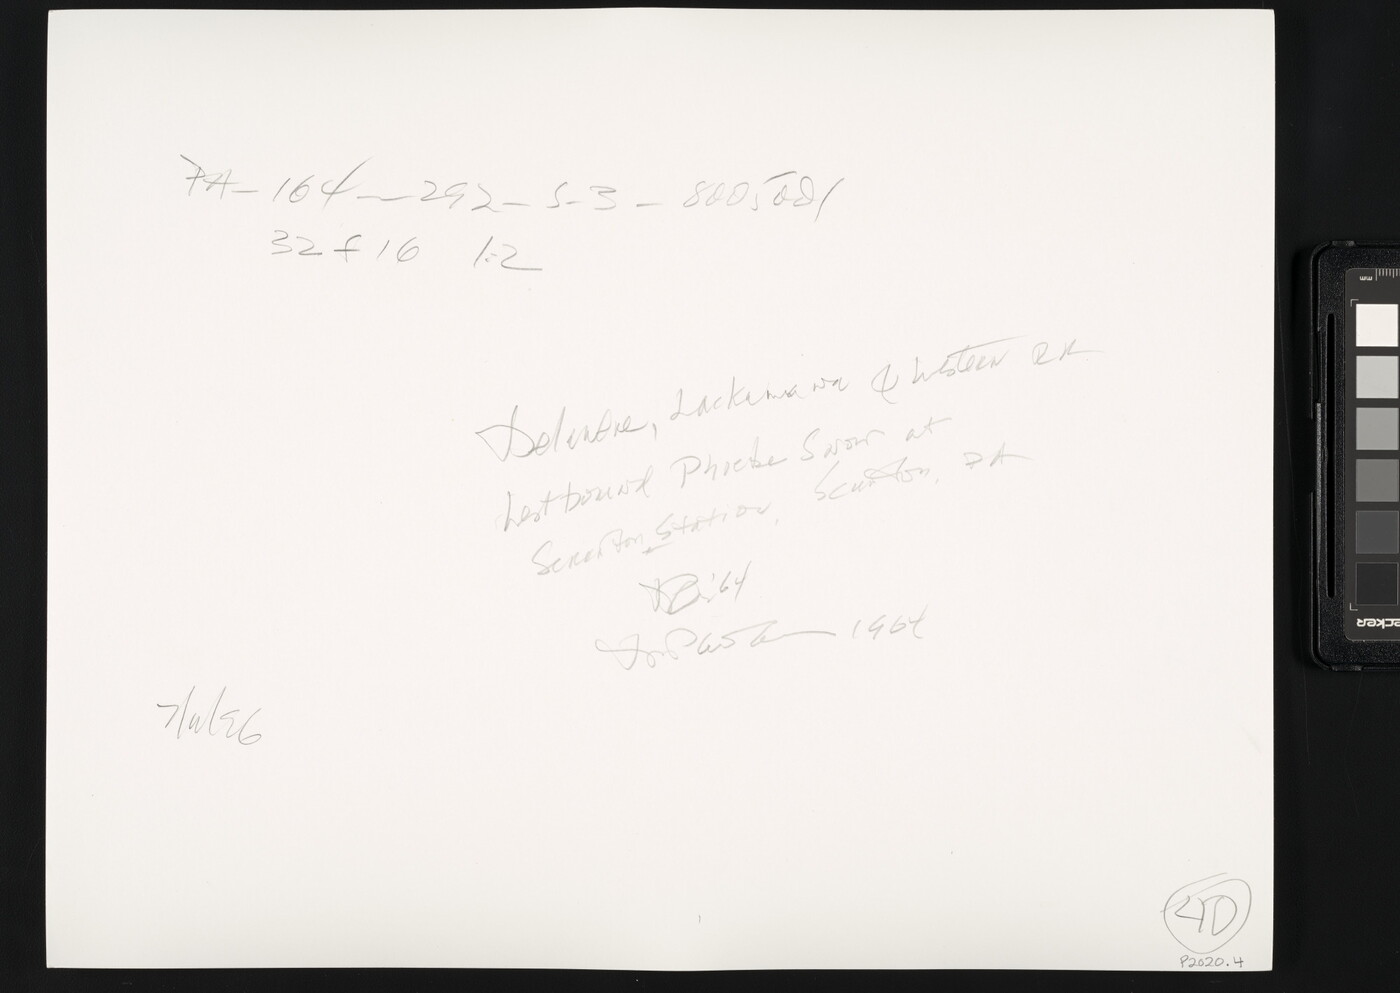 PA-164-292-S-3-8005001
32 f 16 1-2
Delaware, Lackawanna & Western RR
Westbound Phoebe Snow at
Scranton Station, Scranton, PA
'64
1964
40
P2020.4
mm